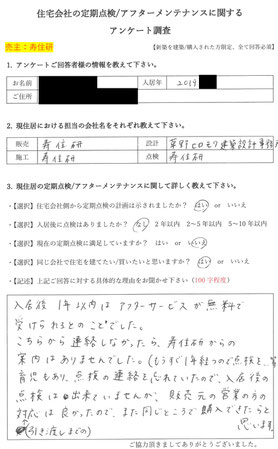 住宅会社の定期点検/アフターメンテナンスに関する
アンケート調査
売主：寿住研
【新築を建築/購入された方限定、全て回答必須】
1. アンケートご回答者様の情報を教えて下さい。
お名前
入居年
2019
ご住所
2. 現住居における担当の会社名をそれぞれ教えて下さい。
販売 寿住研 設計
施工 寿住研 点検 寿住研
3. 現住居の定期点検/アフターメンテナンスに関して詳しく教えて下さい。
・【選択】住宅会社側から定期点検の計画は示されましたか？ はい or いいえ
・【選択】入居後に点検はありましたか？ なし 2年以内 2～5年以内 5～10年以内
・【選択】現在の定期点検に満足していますか？ はい or いいえ
・【選択】同じ会社で住宅を建てたい/買いたいと思いますか？ はい or いいえ
・【記述】上記ご回答に対する具体的な理由をお聞かせ下さい（100字程度）
入居後1年以内はアフターサービスが無料で
受けられるとのことでした。
こちらから連絡しなかったら、寿住研からの
案内はありませんでした。（もうすぐ1年経つので点検を、等）
育児もあり、点検の連絡を忘れていたので、入居後の
点検は出来ていませんが、販売元の営業の方の
対応は良かったので、また同じところで購入できたらと
思います。
（引き渡しまでの）
ご協力頂きましてありがとうございました。